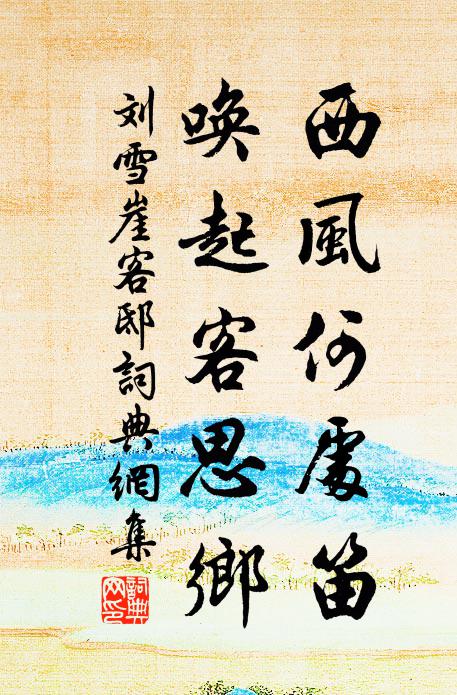 西風何處笛
喚起客思鄉
刘雪崖客邸詞典網集
詞典